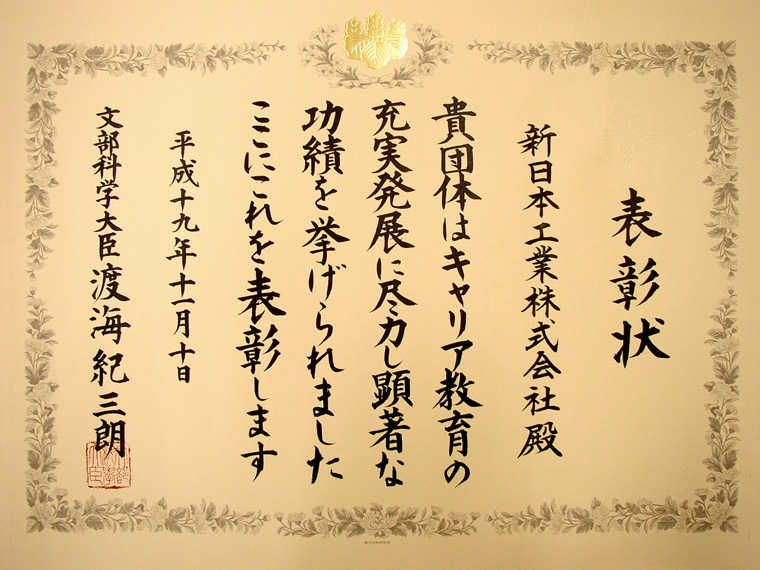 表彰状
新日本工業株式会社殿
貴団体はキャリア教育の
充実発展に尽力し顕著な
功績を挙げられました
ここにこれを表彰します
平成十九年十一月十日
文部科学大臣 渡海紀三朗